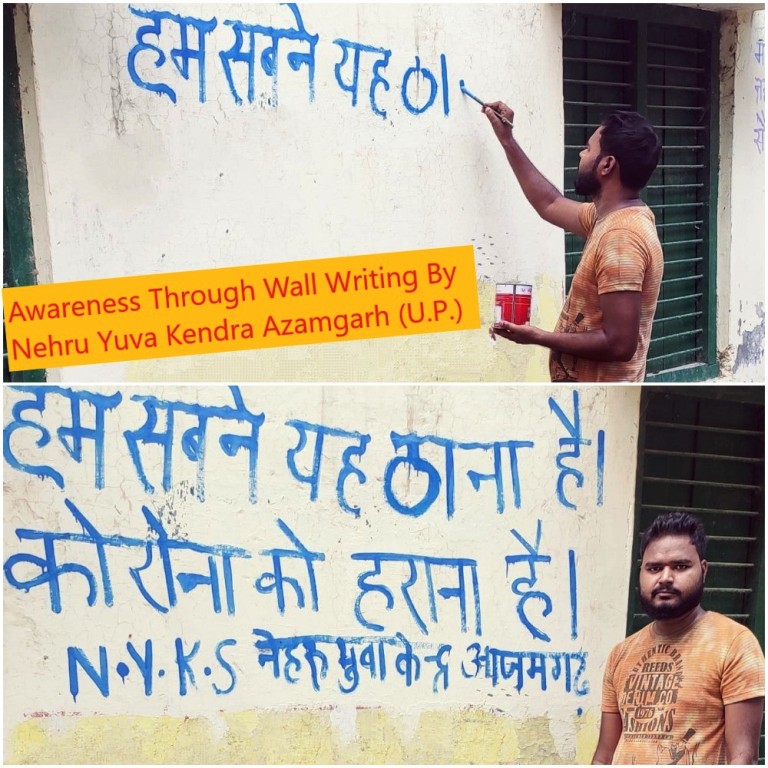 हम सबने यह ठा
Awareness Through Wall Writing By
Nehru Yuva Kendra Azamgarh (U.P.)
हम सबने यह ठाना है।
कोरोना को हराना है।
N.Y.K.S नेहरू युवा केन्द्र आजमगढ़
REEDS
VINTAGE
1976
FASHIONS